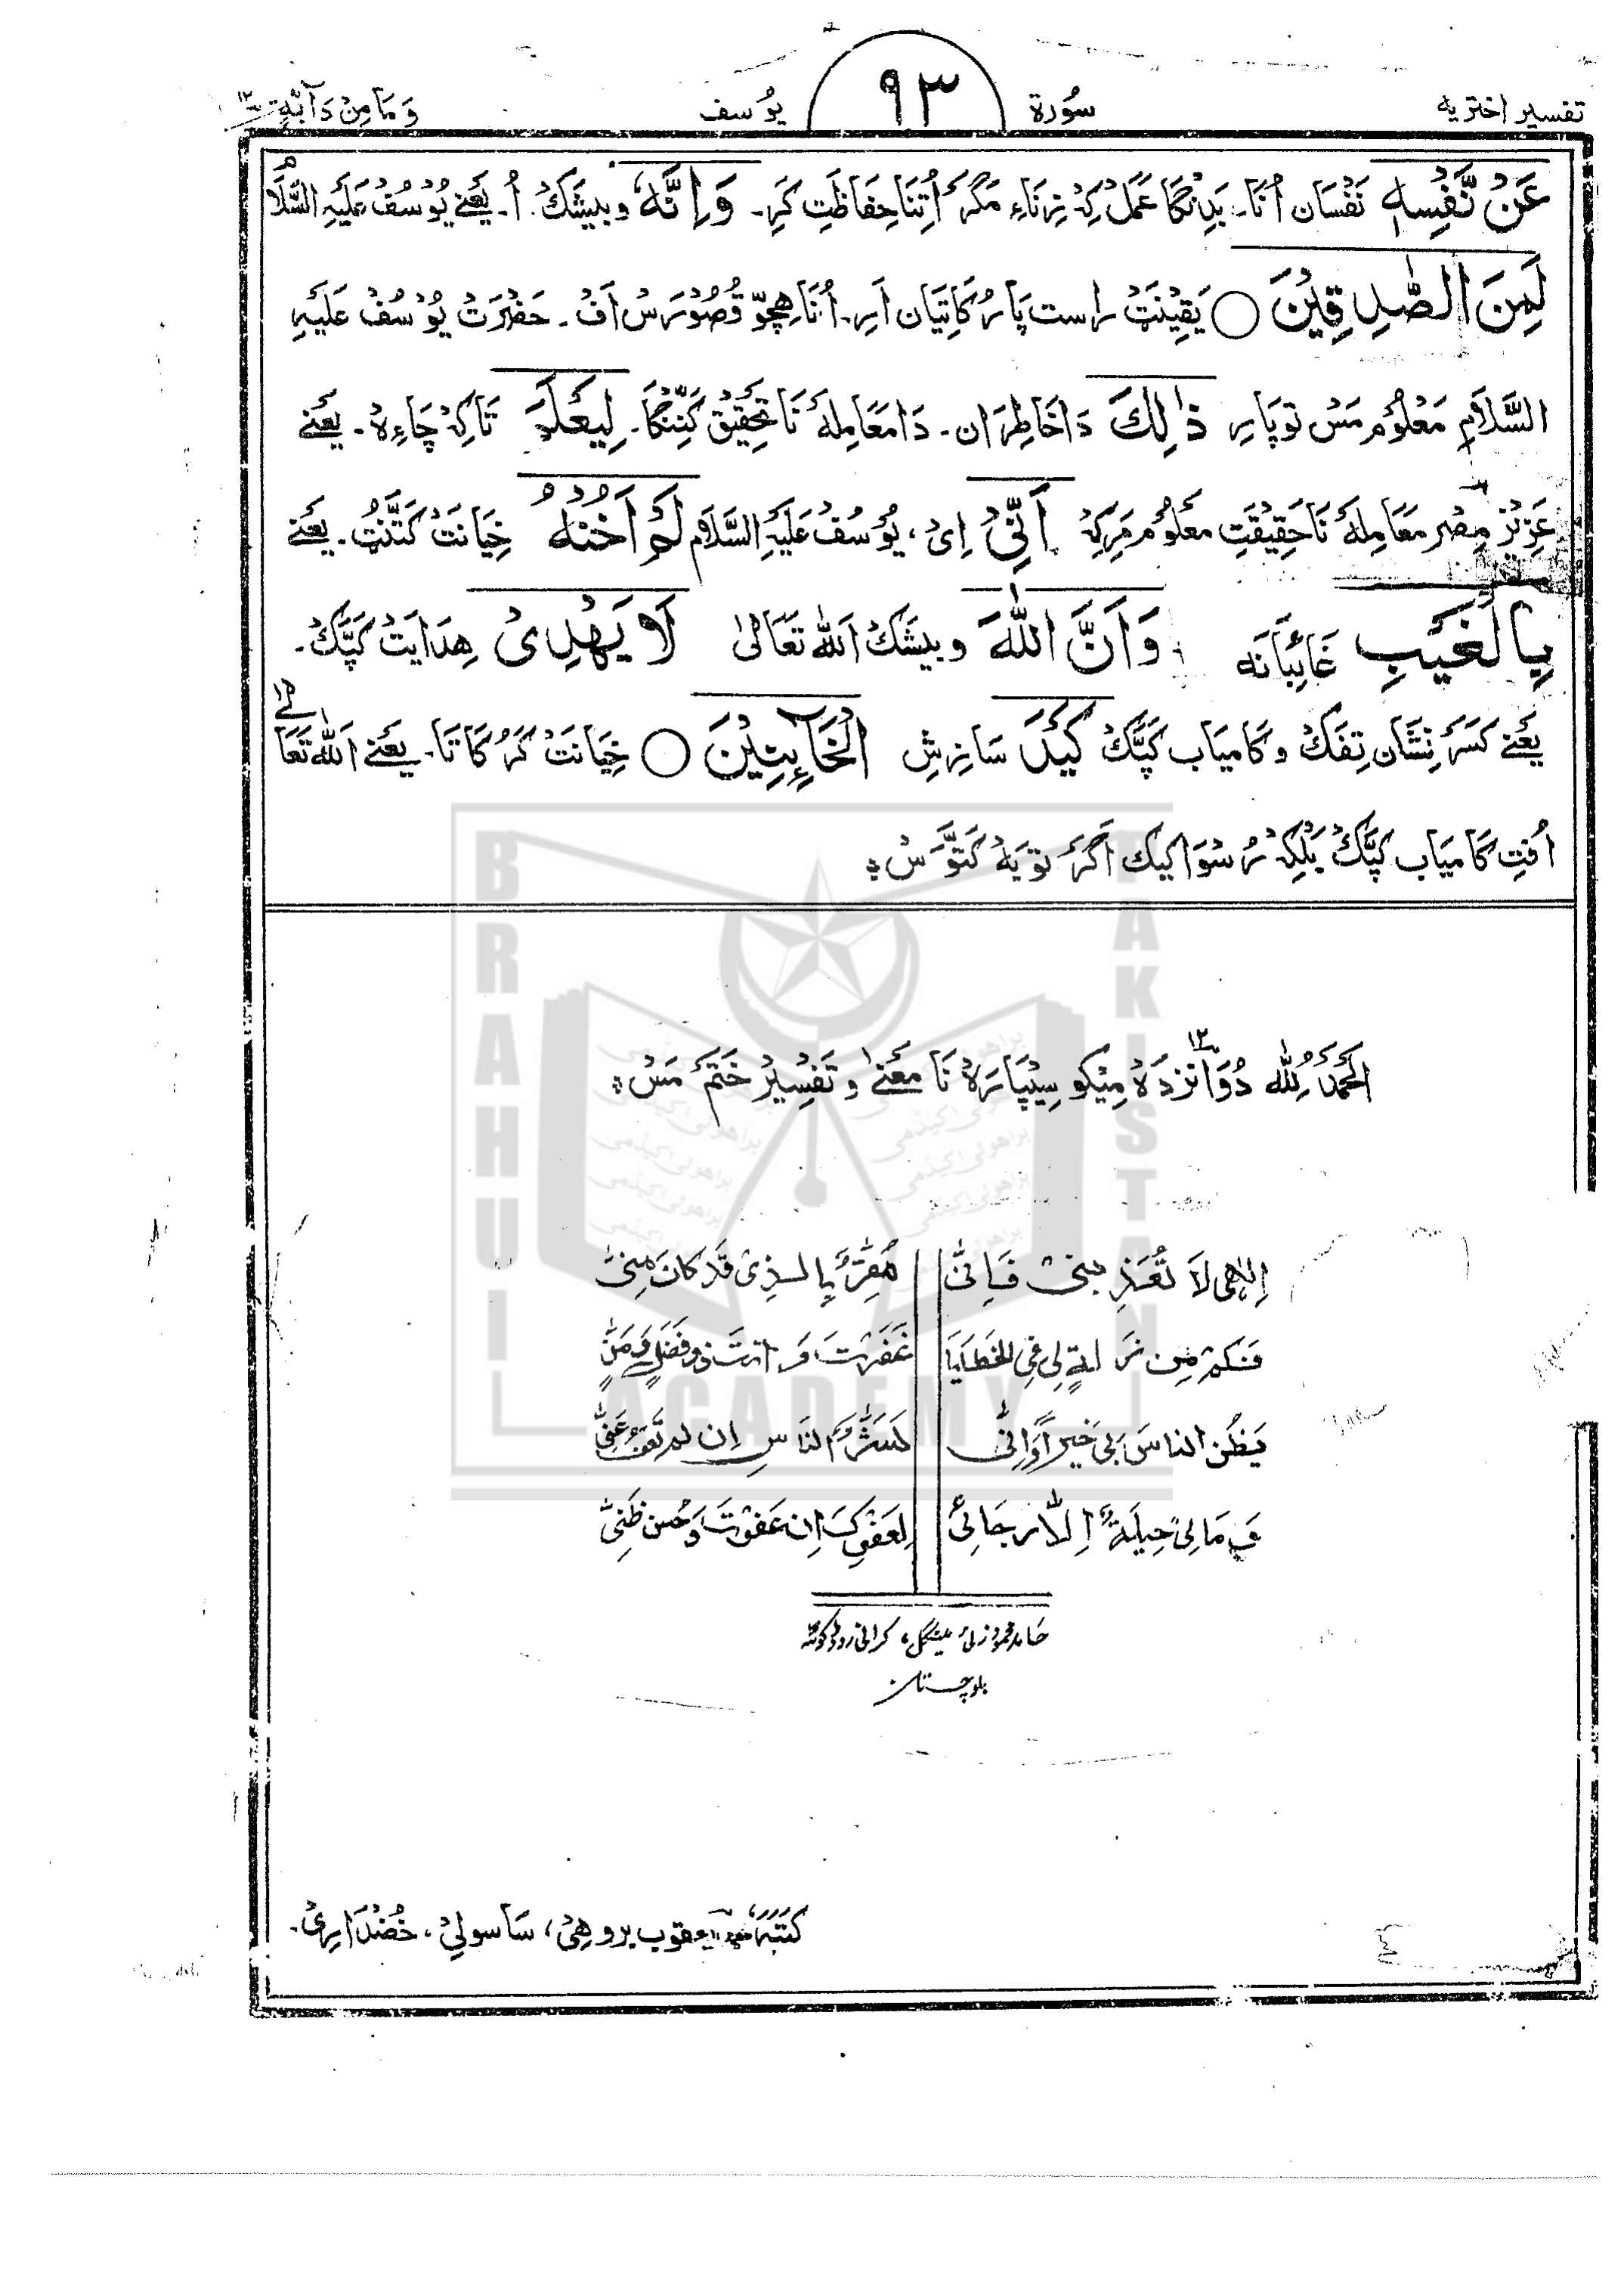 تفسیر اختریه سُورة ٩٣ یوُسف وَمَا مِنْ دَآبَّةٍ ١٢
عَنْ نَّفْسِهٖ نَفْسَان اُنَا۔ بَدِنْگَا عَمَل کِہْ زِنَاءِ مَگَر اُتِنَا حِفَاظَت کَرِ۔ وَاِنَّهٗ وبیشَکْ۔ اُ۔ یَعْنے یُوْسُفْ عَلَیْہِ السَّلَامْ
لَمِنَ الصّٰدِقِیْنَ ○ یَقِیْنَتْ راست پَارُکَاتِیَان اَرِ۔ اُنَا هِچّو قُصُوْرَسْ اَفْ۔ حَضْرَتْ یُوْسُفْ عَلَیْہِ
السَّلَام مَعْلُوْم مَسْ تو پَارِ ذٰلِكَ دَاخَاطِرَان۔ دَا مَعَامِلَہ نَا تَحْقِیْق کَنِنْگَا۔ لِیَعْلَمَ تَاکِہْ چَاءِہْ۔ یَعْنے
عَزِیْز مِصْر مَعَامِلَہ نَا حَقِیْقَتِ مَعْلُوْم مَرِکِہْ اَنِّیْ اِیْ، یُوْسُفْ عَلَیْہِ السَّلَام لَمْ اَخُنْهُ خِیَانَتْ کَتَّنُٹْ۔ یَعْنے
بِالْغَیْبِ غَائِبَانَہ وَاَنَّ اللّٰهَ وبیشَکْ اَللّٰه تَعَالٰی لَا یَهْدِیْ هِدَایَتْ کَپَّکْ۔
یَعْنے کَسَرْ نِشَان تِفَکْ و کَامیَاب کَپَّکْ کَیْدَ سَازِشِ الْخَآئِنِیْنَ ○ خِیَانَتْ کَرُکَاتَا۔ یَعْنے اَللّٰه تَعَالٰے
اُفْتِ کَامیَاب کَپَّکْ بَلْکِہْ رُسْوَا کیک اَگَرْ توْبَہْ کَتَوَسْ ؞
اَلْحَمْدُ لِلّٰه دُوَانزدَہ ١٢ مِیْکو سِیْپَارَہْ نَا مَعْنےٰ و تَفْسِیْرْ خَتَمْ مَسْ ؞
اِلٰهی لَا تُعَذِّبنیْ فَاِنّیْ مُقِرٌّ بِالَّذِیْ قَدْ کَانَ مِنِّیْ
فَکَمْ مِن زَلَّةٍ لِی فِی الخَطَایَا غَفَرْتَ وَ اَنْتَ ذُو فَضْلٍ وَّمَنٍّ
یَظُنُّ الناسُ بِی خَیْراً وَّاِنّی لَشَرُّ النَاسِ اِن لم تَعْفُ عَنِّی
وَ مَا لِیْ حِیلَةٌ اِلَّا رَجَائِیْ لِعَفْوِكَ اِن عَفَوْتَ وَحُسن ظَنِّیْ
حامد محمود زئی مینگل، کرانی روڈ کوئٹہ
بلوچستان
کَتَبَہٗ محمد یعقوب بروهیْ، سَاسولیْ، خُضْدَارِیْ۔
BRAHUI
ACADEMY
PAKISTAN
براهوئی اکیڈمی